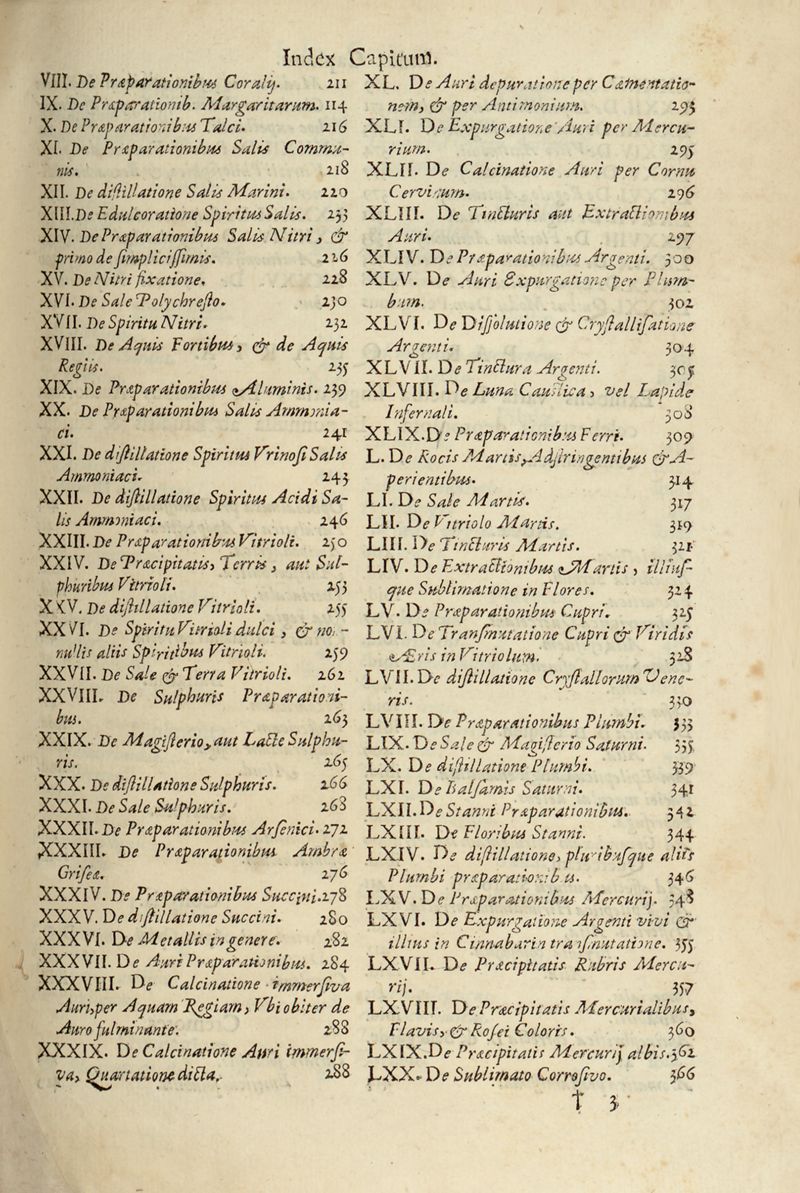 Index Capitum.
VIII. De Præparationibus Coralij. 211
IX. De Præparationib. Margaritarum. 114
X. De Præparationibus Talci. 216
XI. De Præparationibus Salis Commu-
nis. 218
XII. De distillatione Salis Marini. 220
XIII. De Edulcoratione Spiritus Salis. 233
XIV. De Præparationibus Salis Nitri, &
primo de simplicissimis. 226
XV. De Nitri fixatione. 228
XVI. De Sale Polychresto. 230
XVII. De Spiritu Nitri. 232
XVIII. De Aquis Fortibus, & de Aquis
Regiis. 235
XIX. De Præparationibus Aluminis. 239
XX. De Præparationibus Salis Ammonia-
ci. 241
XXI. De distillatione Spiritus Vrinosi Salis
Ammoniaci. 243
XXII. De distillatione Spiritus Acidi Sa-
lis Ammoniaci. 246
XXIII. De Præparationibus Vitrioli. 250
XXIV. De Præcipitatis, Terris, aut Sul-
phuribus Vitrioli. 253
XXV. De distillatione Vitrioli. 255
XXVI. De Spiritu Vitrioli dulci, & no-
nullis aliis Spiritibus Vitrioli. 259
XXVII. De Sale & Terra Vitrioli. 262
XXVIII. De Sulphuris Præparationi-
bus. 263
XXIX. De Magisterio, aut Lacte Sulphu-
ris. 265
XXX. De distillatione Sulphuris. 266
XXXI. De Sale Sulphuris. 268
XXXII. De Præparationibus Arsenici. 272
XXXIII. De Præparationibus Ambræ
Griseæ. 276
XXXIV. De Præparationibus Succini. 278
XXXV. De distillatione Succini. 280
XXXVI. De Metallis in genere. 282
XXXVII. De Auri Præparationibus. 284
XXXVIII. De Calcinatione immersiva
Auri, per Aquam Regiam, Vbi obiter de
Auro fulminante. 288
XXXIX. De Calcinatione Auri immersi-
va, Quartatione dicta, 288
XL. De Auri depuratione per Cæmentatio-
nem, & per Antimonium. 293
XLI. De Expurgatione Auri per Mercu-
rium. 295
XLII. De Calcinatione Auri per Cornu
Cervinum. 296
XLIII. De Tincturis aut Extractionibus
Auri. 297
XLIV. De Præparationibus Argenti. 300
XLV. De Auri Expurgatione per Plum-
bum. 302
XLVI. De Dissolutione & Crystallisatione
Argenti. 304
XLVII. De Tinctura Argenti. 305
XLVIII. De Luna Caustica, vel Lapide
Infernali. 308
XLIX. De Præparationibus Ferri. 309
L. De Rocis Martis, Adstringentibus & A-
perientibus. 314
LI. De Sale Martis. 317
LII. De Vitriolo Martis. 319
LIII. De Tincturis Martis. 321
LIV. De Extractionibus Martis, illius-
que Sublimatione in Flores. 324
LV. De Præparationibus Cupri. 325
LVI. De Transmutatione Cupri & Viridis
Æris in Vitriolum. 328
LVII. De distillatione Crystallorum Vene-
ris. 330
LVIII. De Præparationibus Plumbi. 333
LIX. De Sale & Magisterio Saturni. 335
LX. De distillatione Plumbi. 339
LXI. De Balsamis Saturni. 341
LXII. De Stanni Præparationibus. 342
LXIII. De Floribus Stanni. 344
LXIV. De distillatione, pluribusque aliis
Plumbi præparationibus. 346
LXV. De Præparationibus Mercurij. 348
LXVI. De Expurgatione Argenti vivi &
illius in Cinnabarin transmutatione. 355
LXVII. De Præcipitatis Rubris Mercu-
rij. 357
LXVIII. De Præcipitatis Mercurialibus,
Flavis, & Rosei Coloris. 360
LXIX. De Præcipitatis Mercurij albis. 362
LXX. De Sublimato Corrosivo. 366
† 3